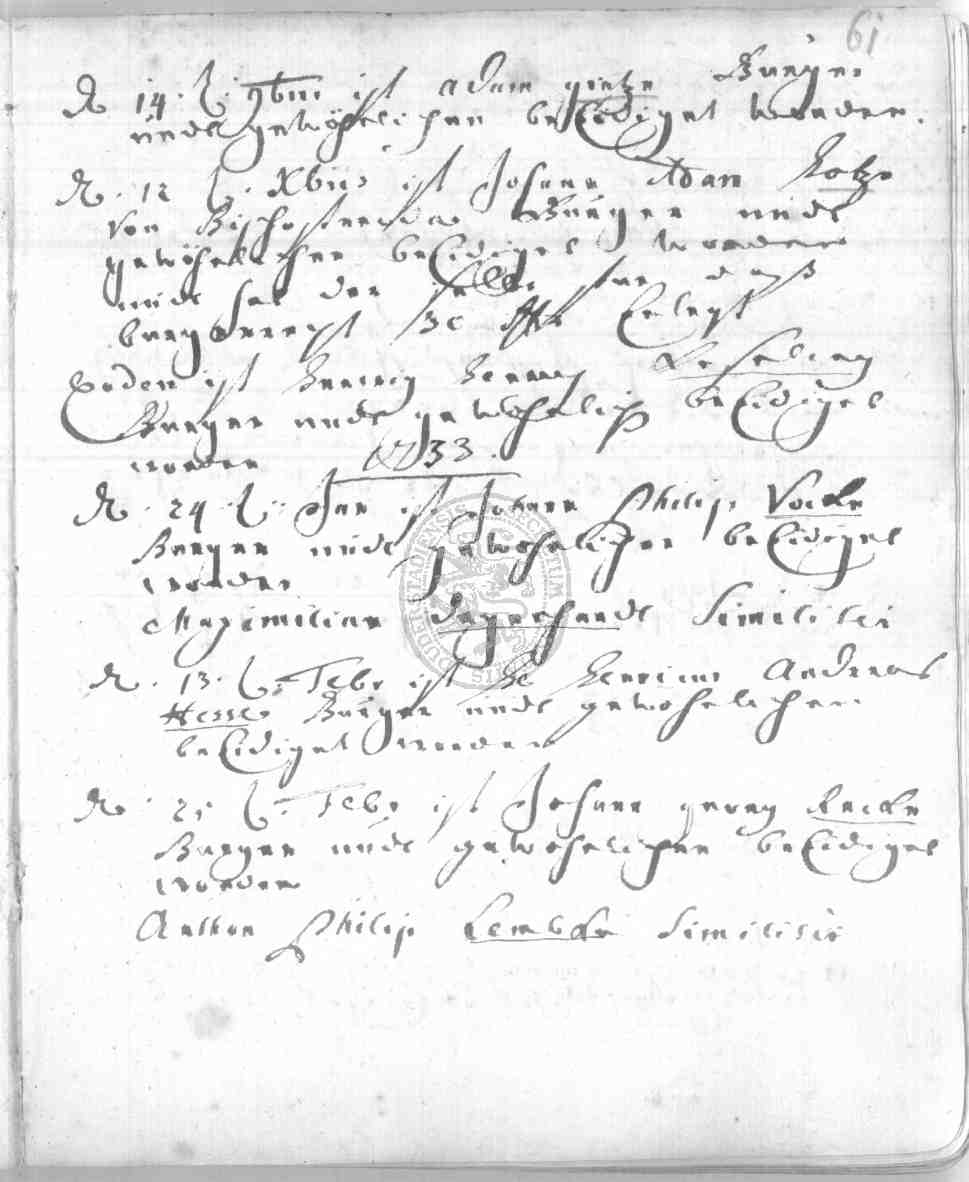 61
D 14 t. 9bris ist Adam gintze Burger
undt gewöhnlicher beEidiget worden.
D. 12 t. Xbris ist Johann Adam Kotze
von Bischofferoda Burger undt
gewöhnlicher beEidiget worden
undt hat der selbe vor daß
burgerrecht 30 Erlegt
Eodem ist Henrich
Burger undt gewöhnlich beEidiget
worden 1733.
D. 24 t. Jan ist Johann Philip Vocke
Burger undt gewöhnlicher beEidiget
worden
Maximilian Degenhardt Similiter
D. 13. t. Febr ist Henricus Andreas
Hesse Burger undt gewöhnlicher
beEidiget worden
D. 25 t. Febr ist Johann georg Lencke
Burger undt gewöhnlicher beEidiget
worden
Anthon Philip Lemcke Similiter